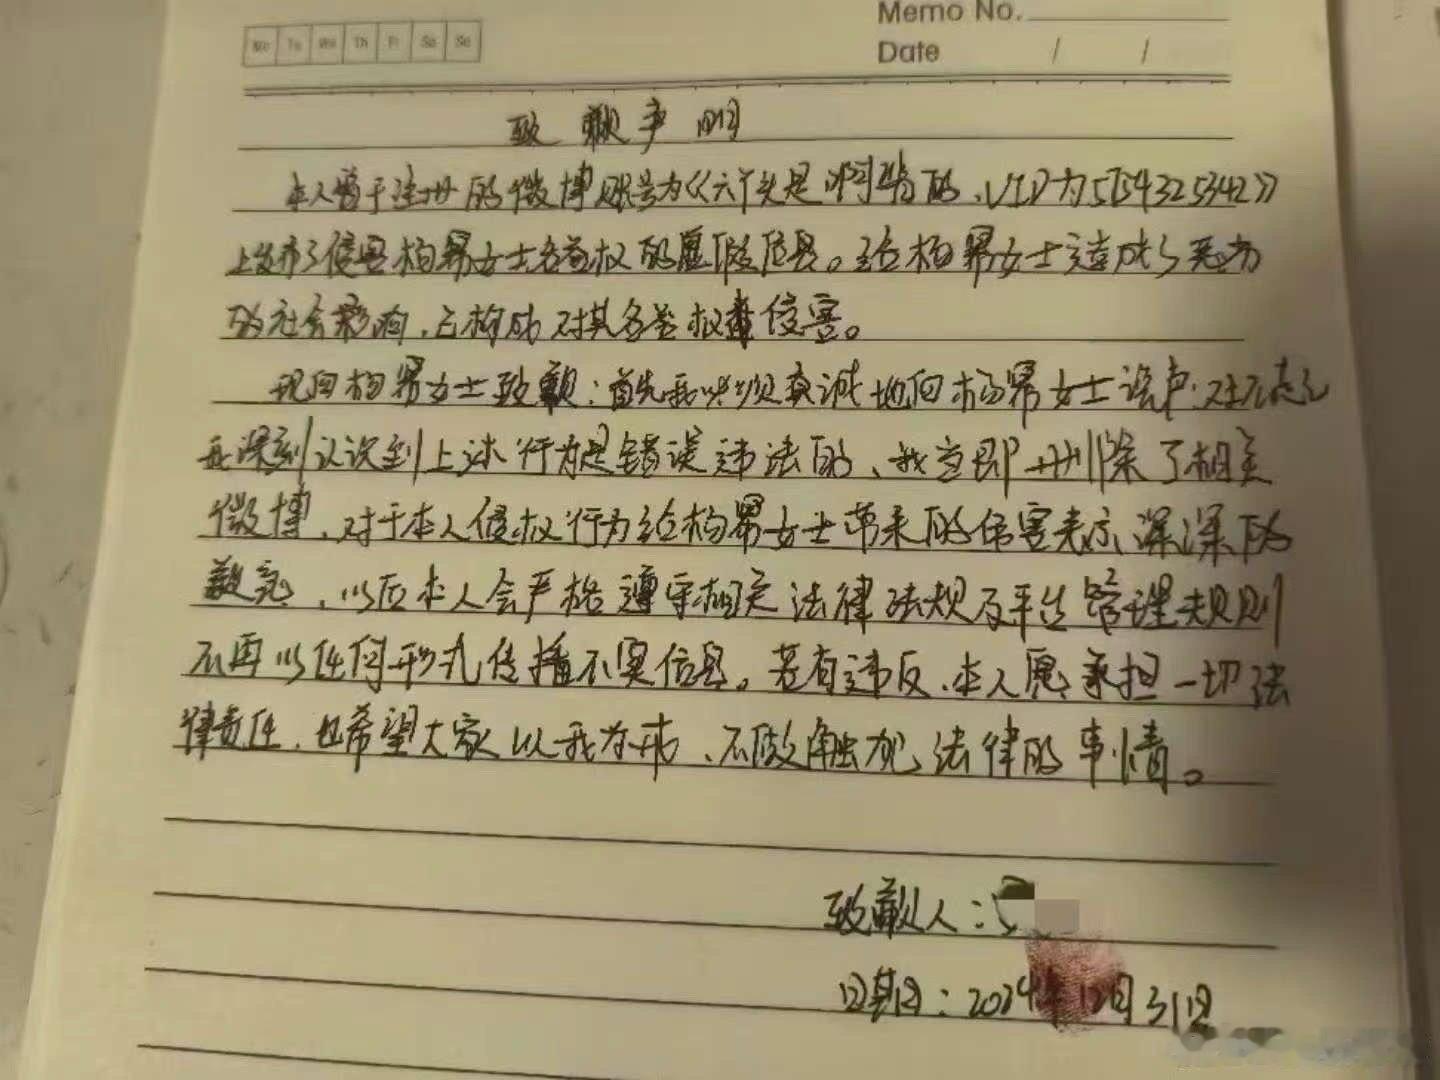 Memo No.
Mo Tu We Th Fr Sa Su
Date / /
致歉声明
本人曾于注册的微博账号为《六丫头是啊骗的、UID为5754325342》
上发布了侵害杨幂女士名誉权的虚假信息。给杨幂女士造成了恶劣
的社会影响，已构成对其名誉权侵害。
现向杨幂女士致歉：首先我必须真诚地向杨幂女士说声：对不起
我深刻认识到上述行为是错误违法的、我立即删除了相关
微博、对于本人侵权行为给杨幂女士带来的伤害表示深深的
歉意、以后本人会严格遵守相关法律法规及平台管理规则
不再以任何形式传播不实信息。若有违反、本人愿承担一切法
律责任、也希望大家以我为戒、不做触犯法律的事情。
致歉人：
日期：2024年12月31日